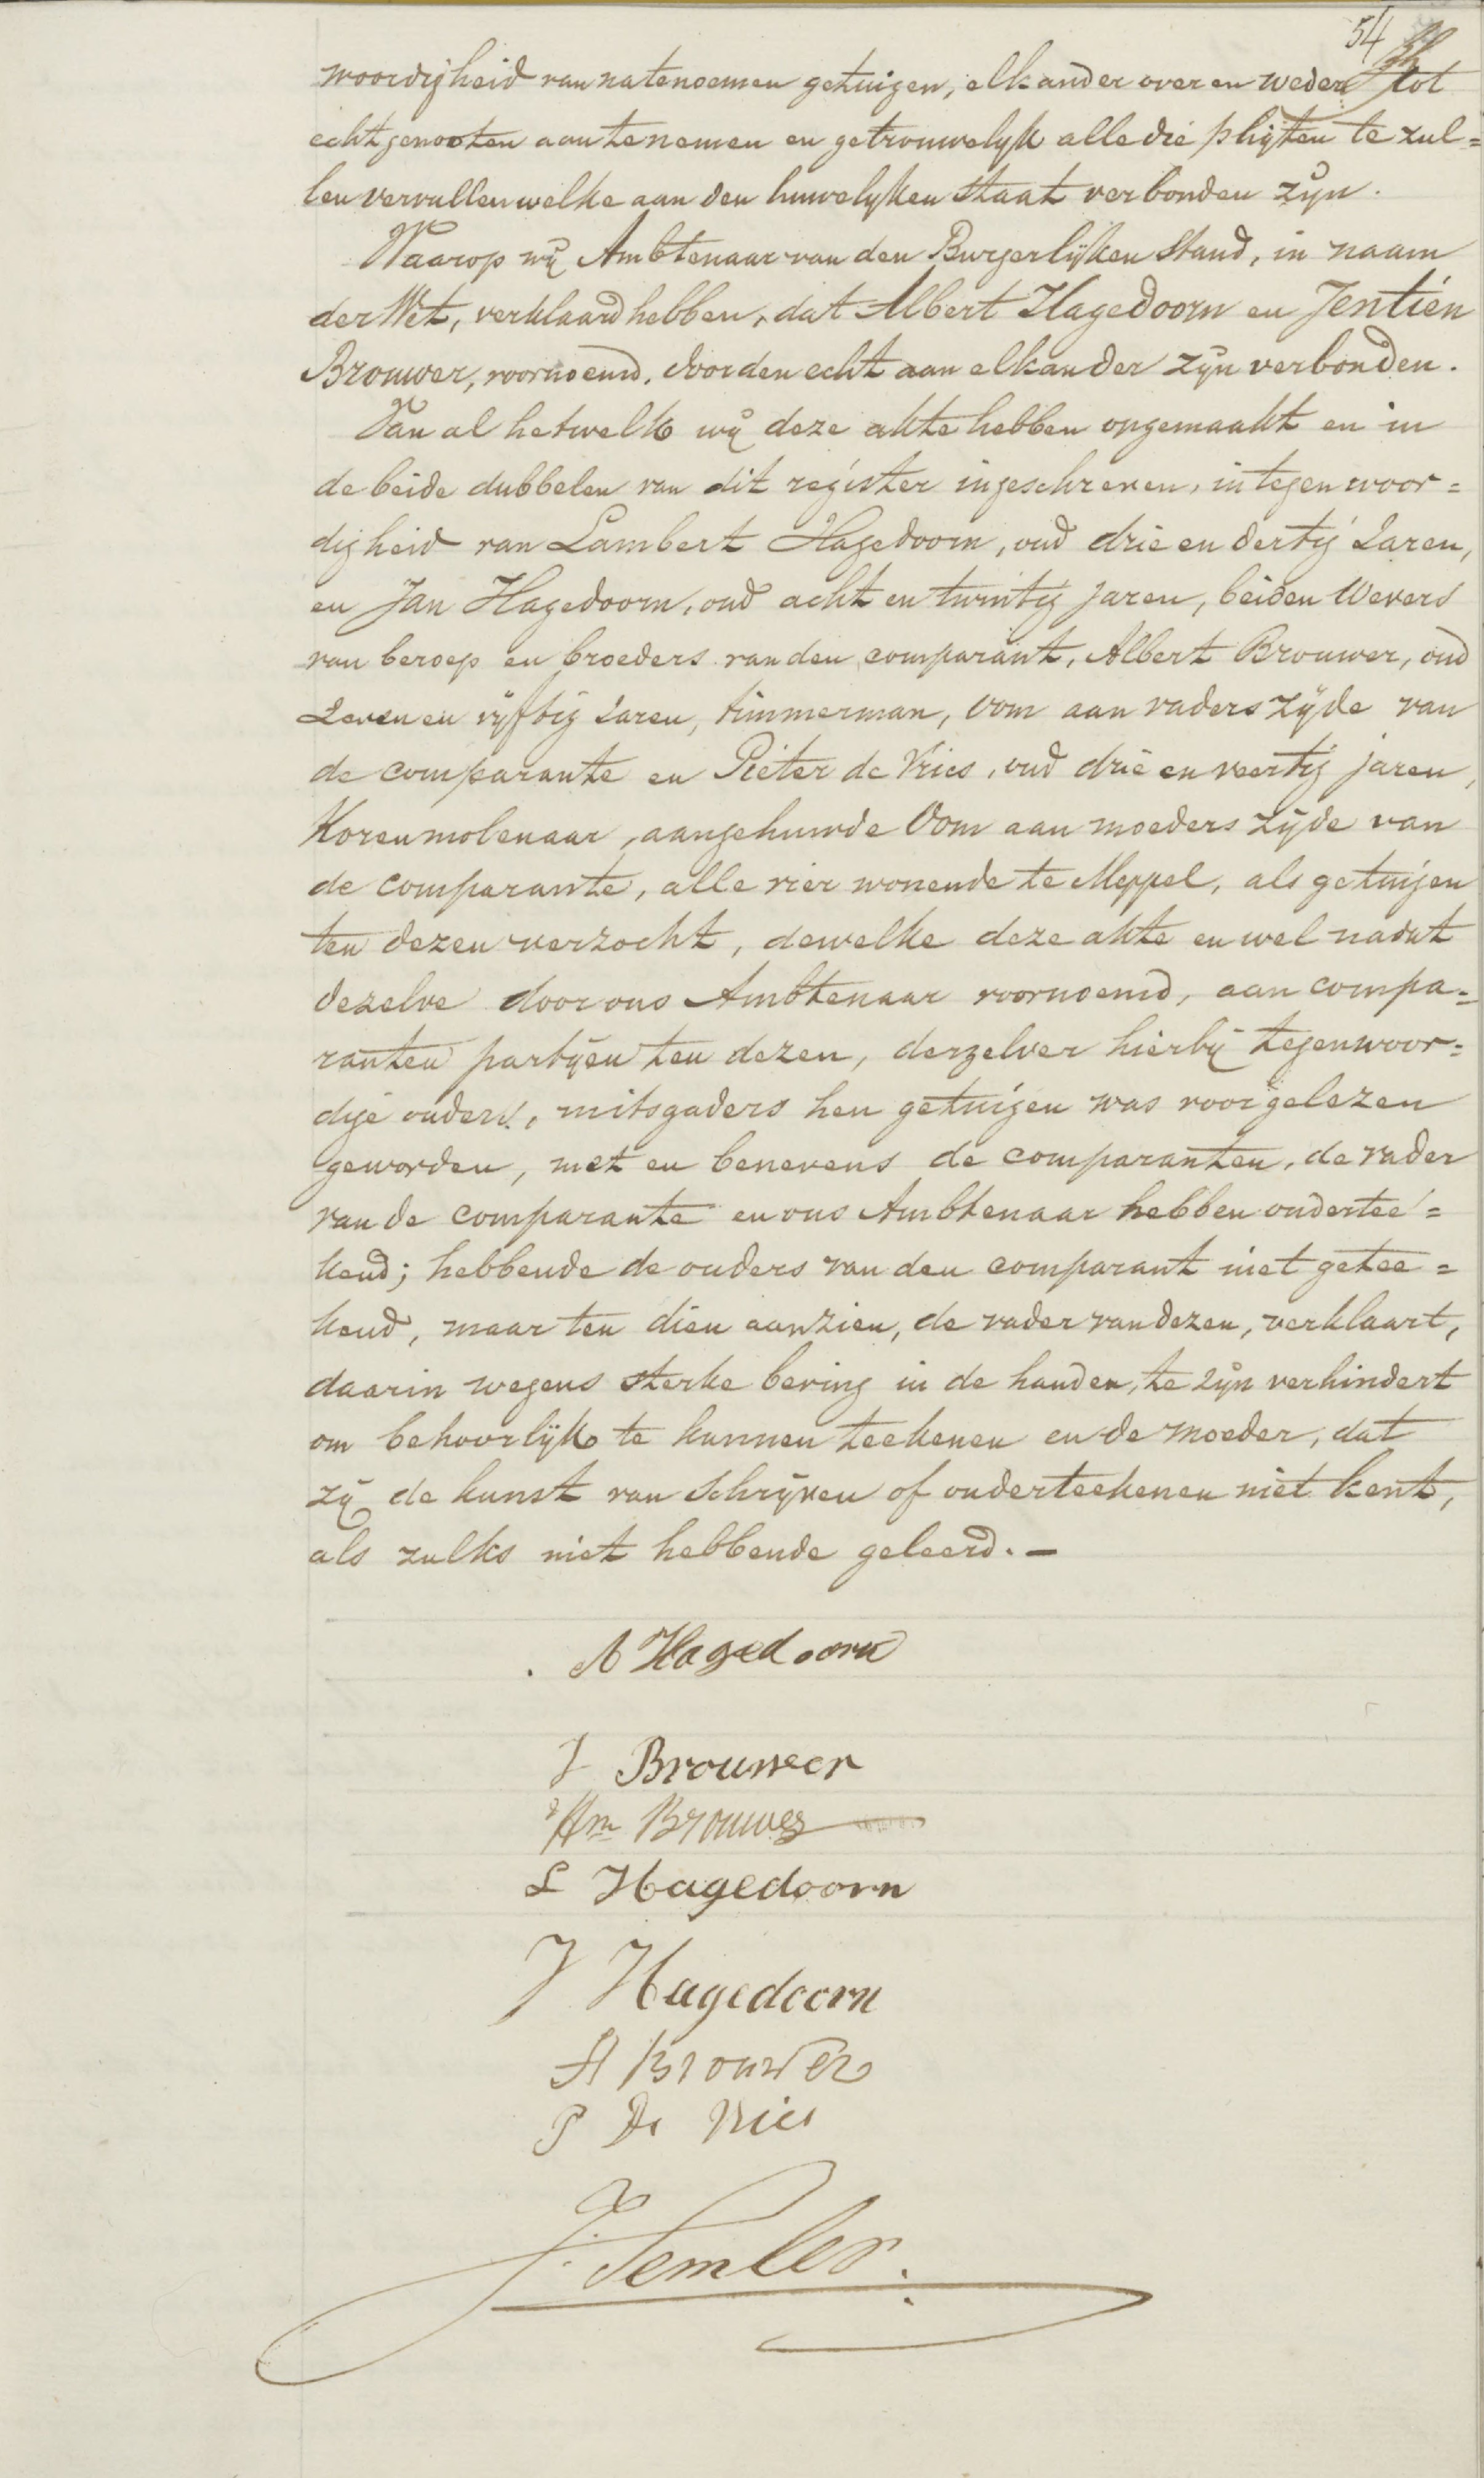 54
woordigheid van natenoemen getuigen, elkander over en weder tot
echtgenooten aantenemen en getrouwelyk alle die pligten te zul=
len vervullen welke aan den huwelyken staat verbonden zyn.
Waarop wij Ambtenaar van den Burgerlijken Stand, in naam
der Wet, verklaard hebben, dat Albert Hagedoorn en Jentien
Brouwer, voornoemd, door den echt aan elkander zijn verbonden.
Van al hetwelk wij deze akte hebben opgemaakt en in
de beide dubbelen van dit register ingeschreven, in tegenwoor=
digheid van Lambert Hagedoorn, oud drie en dertig Jaren,
en Jan Hagedoorn, oud acht en twintig jaren, beiden Wevers
van beroep en broeders van den comparant, Albert Brouwer, oud
Zeven en vijftig Jaren, timmerman, Oom aan vaders zijde van
de comparante en Pieter de Vries, oud drie en veertig jaren,
Korenmolenaar, aangehuwde Oom aan moeders zijde van
de comparante, alle vier wonende te Meppel, als getuigen
ten dezen verzocht, dewelke deze akte en wel nadat
dezelve door ons Ambtenaar voornoemd, aan compa=
ranten partijen ten dezen, derzelver hierbij tegenwoor=
dige ouders, mitsgaders hen getuigen was voorgelezen
geworden, met en benevens de comparanten, de vader
van de comparante en ons Ambtenaar hebben ondertee=
kend; hebbende de ouders van den comparant niet getee=
kend, maar ten dien aanzien, de vader van dezen, verklaart,
daarin wegens sterke beving in de handen, te zijn verhindert
om behoorlijk te kunnen teekenen en de moeder, dat
zij de kunst van Schrijven of onderteekenen niet kent,
als zulks niet hebbende geleerd. –
A Hagedoorn
J Brouwer
Hm Brouwer
L Hagedoorn
J Hagedoorn
A Brouwer
P De Vries
J. Semler.